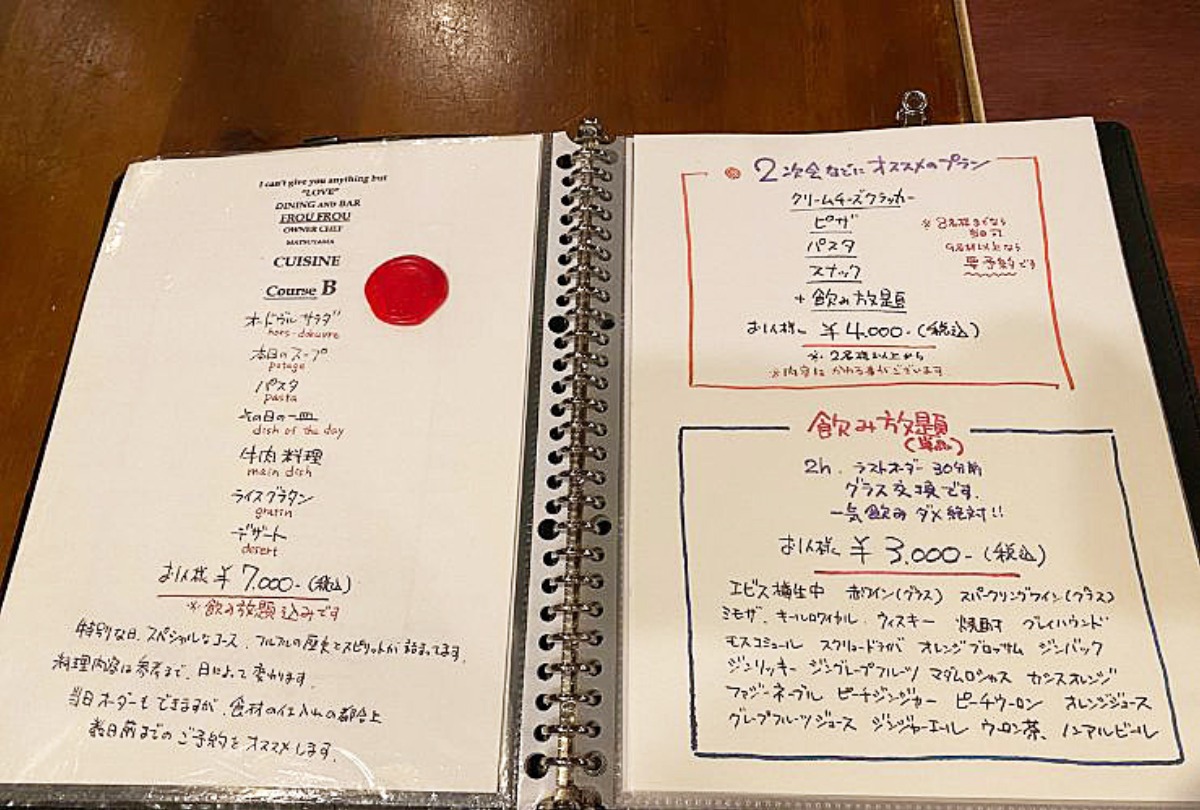 I can't give you anything but
"LOVE"
DINING AND BAR
FROU FROU
OWNER CHEF
MATSUYAMA
CUISINE
Course B
オードヴル サラダ
hors-dokuvre
本日のスープ
potage
パスタ
pasta
その日の一皿
dish of the day
牛肉料理
main dish
ライスグラタン
gratin
デザート
desert
お1人様 ¥7,000-(税込)
※飲み放題込みです
特別な日、スペシャルなコース、フルフルの歴史とスピリットが詰まってます。
料理内容は参考まで、日によって変わります。
当日オーダーもできますが、食材の仕入れの都合上
数日前までのご予約をオススメします。
2次会などにオススメのプラン
クリームチーズクラッカー
ピザ
パスタ
スナック
+飲み放題
※8名様までなら
当日可
9名様以上なら
要予約です
お1人様 ¥4,000-(税込)
※2名様以上から
※内容はかわる事がございます
飲み放題
(単品)
2h. ラストオーダー 30分前
グラス交換です。
一気飲みダメ絶対!!
お1人様 ¥3,000-(税込)
エビス樽生中 赤ワイン(グラス) スパークリングワイン(グラス)
ミモザ、キールロワイヤル ウィスキー 焼酎 グレイハウンド
モスコミュール スクリュードライバ オレンジブロッサム ジンバック
ジンリッキー ジングレープフルーツ マダムロシャス カシスオレンジ
ファジーネーブル ピーチジンジャー ピーチウーロン オレンジジュース
グレープフルーツジュース ジンジャーエール ウーロン茶、ノンアルビール